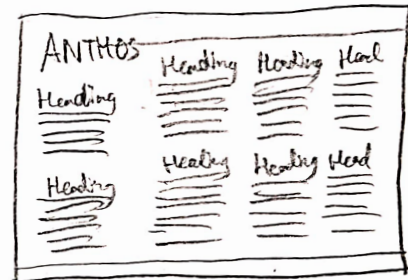 ANTHOS
Heading
Heading
Heading
Head
Heading
Heading
Heading
Head